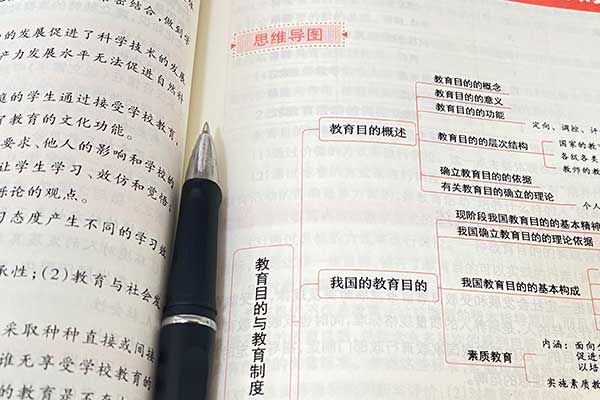 密结合,做到学
的发展促进了科学技术的发展
产力发展水平无法促进自然科
庭的学生通过接受学校教育,
了教育的文化功能。
要求、他人的影响和学校的
让学生学习、效仿和觉悟;
际论的观点。
习态度产生不同的学习效
承性;(2)教育与社会发
采取种种直接或间接
谁无享受学校教育的
的教育是不
思维导图
教育目的与教育制度
教育目的概述
教育目的的概念
教育目的的意义
教育目的的功能
定向、调控、评
教育目的的层次结构
国家的教
各级各类
教师的教
确立教育目的的依据
有关教育目的确立的理论
个人
我国的教育目的
现阶段我国教育目的的基本精神
我国确立教育目的的理论依据
我国教育目的的基本构成
素质教育
内涵:面向全
促进
以培
实施素质教